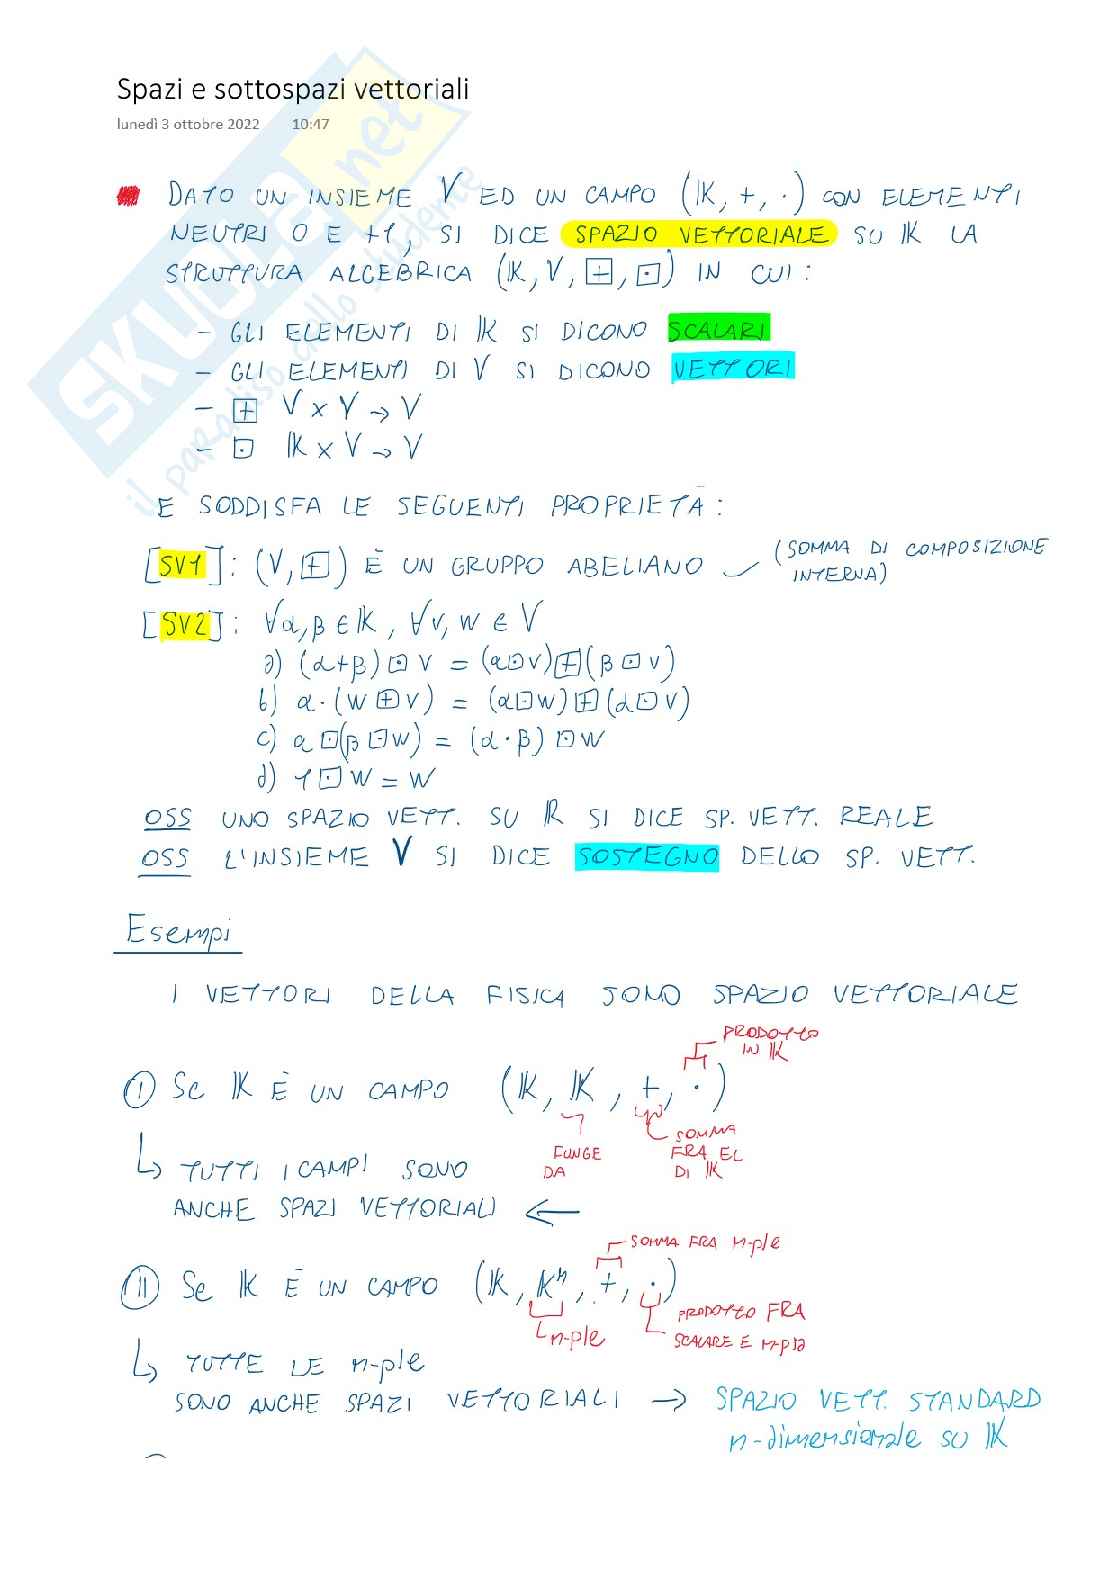 Spazi e sottospazi vettoriali
lunedì 3 ottobre 2022 10:47
SKUOLA.net
il paradiso dello studente
DATO UN INSIEME V ED UN CAMPO (𝕂, +, ·) CON ELEMENTI
NEUTRI 0 E +1, SI DICE SPAZIO VETTORIALE SU 𝕂 LA
STRUTTURA ALGEBRICA (𝕂, V, ⊞, ⊡) IN CUI:
- GLI ELEMENTI DI 𝕂 SI DICONO SCALARI
- GLI ELEMENTI DI V SI DICONO VETTORI
- ⊞ V × V → V
- ⊡ 𝕂 × V → V
E SODDISFA LE SEGUENTI PROPRIETÀ:
[SV1]: (V, ⊞) È UN GRUPPO ABELIANO (SOMMA DI COMPOSIZIONE
INTERNA)
[SV2]: ∀α, β ∈ 𝕂, ∀v, w ∈ V
a) (α+β) ⊡ v = (α⊡v) ⊞ (β⊡v)
b) α · (w ⊞ v) = (α⊡w) ⊞ (α⊡v)
c) α ⊡ (β ⊡ w) = (α · β) ⊡ w
d) 1 ⊡ w = w
OSS UNO SPAZIO VETT. SU ℝ SI DICE SP. VETT. REALE
OSS L'INSIEME V SI DICE SOSTEGNO DELLO SP. VETT.
Esempi
I VETTORI DELLA FISICA SONO SPAZIO VETTORIALE
PRODOTTO
IN 𝕂
(I) Se 𝕂 È UN CAMPO (𝕂, 𝕂, +, ·)
SOMMA
FRA EL
DI 𝕂
FUNGE
DA
↳ TUTTI I CAMPI SONO
ANCHE SPAZI VETTORIALI ←
SOMMA FRA n-ple
(II) Se 𝕂 È UN CAMPO (𝕂, 𝕂ⁿ, +, ·)
n-ple
PRODOTTO FRA
SCALARE E n-pla
↳ TUTTE LE n-ple
SONO ANCHE SPAZI VETTORIALI → SPAZIO VETT. STANDARD
n-dimensionale SU 𝕂